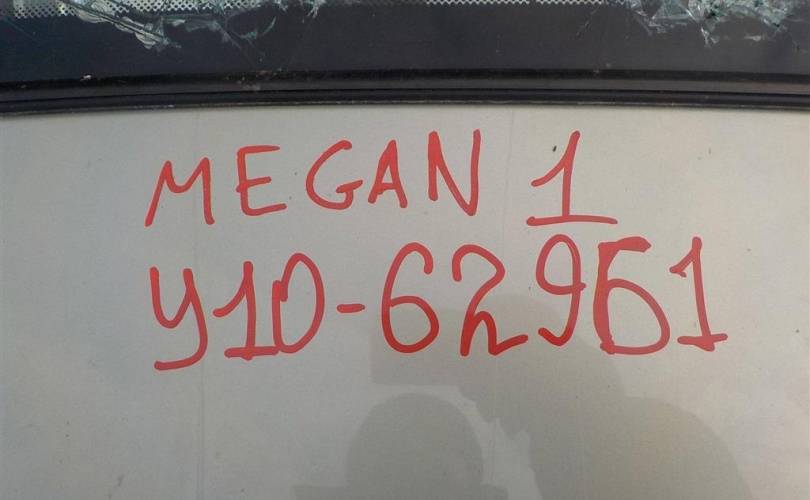 MEGAN 1
У10-62961